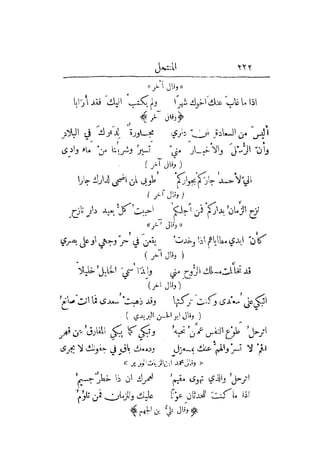 ٢٢٢ المنتحل
« وقال آخر »
اذا ما غاب عنك اخوك شهرًا ولم يكتب اليك فقد أرابا
﴿ وقال آخر ﴾
أليس من السعادة ان داري مجاورة لدارك في البلاد
وأن الريح والأخبار مني تسير وشربنا من ماء وادى
( وقال آخر )
اني لأحسد جاركم بجواركم طوبى لمن اضحى لدارك جارا
( وقال آخر )
نزح الزمان بداركم فمن أجلكم احببت كل بعيد دار نازح
« وقال آخر »
كأن ايدي مطاياهم اذا وخدت يقعن في حر وجهي او على بصري
( وقال آخر )
قد تخللت مسلك الروح مني ولذا سمي الخليل خليلا
( وقال آخر )
اتبكي على سعدى وكنت تركتها وقد ذهبت سعدى فما انت صانع
( وقال ابو الحسن البريدي )
اترحل طوع النفس عمن تحبه وتبكي كما يبكي المفارق عن قهر
اقم لا تسر والهم عنك بمعزل ودمعك باق في جفونك لا يجرى
« وقال محمد ابن الزيات »
اترحل والذي تهوى مقيم لعمرك ان ذا خطر جسيم
اذا ما كنت للحدثان عونًا عليك وللزمان فمن تلوم
﴿ وقال علي بن الجهم ﴾